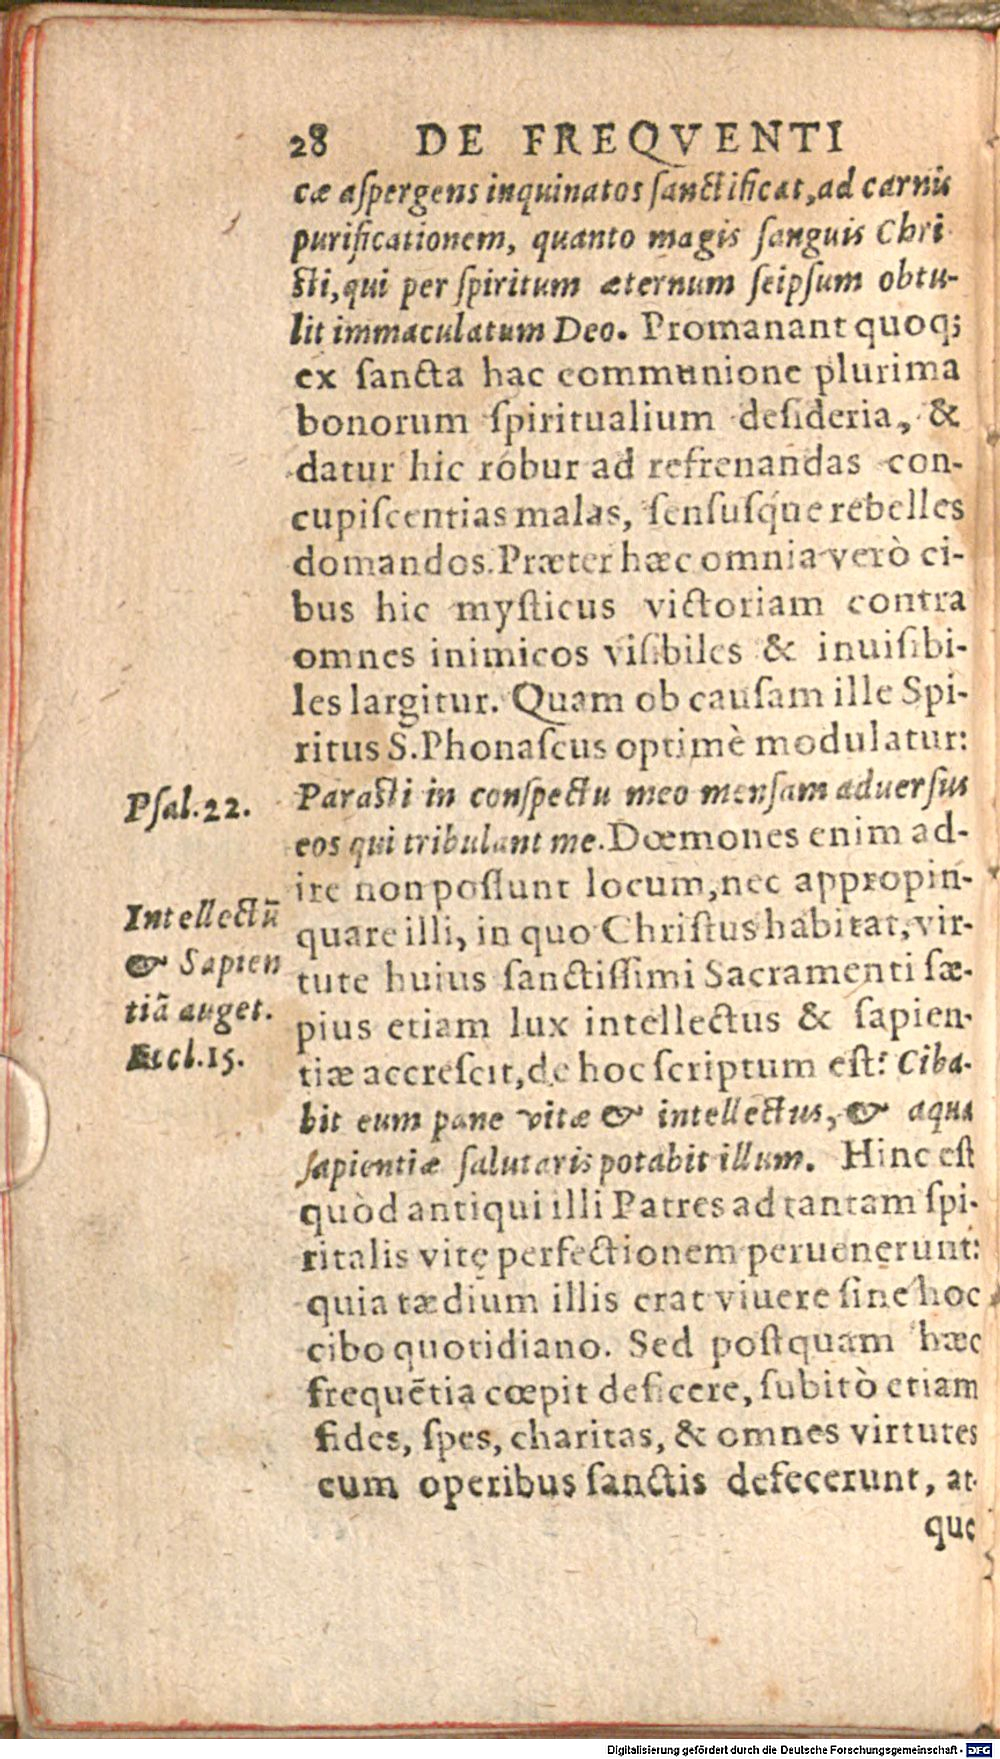 28 DE FREQVENTI
cæ aſpergens inquinatos ſanctificat, ad carnis
purificationem, quanto magis ſanguis Chri
ſti, qui per ſpiritum æternum ſeipſum obtu-
lit immaculatum Deo. Promanant quoq;
ex ſancta hac communione plurima
bonorum ſpiritualium deſideria, &
datur hic robur ad refrenandas con-
cupiſcentias malas, ſenſuſq́ue rebelles
domandos. Præter hæc omnia verò ci-
bus hic myſticus victoriam contra
omnes inimicos viſibiles & inuiſibi-
les largitur. Quam ob cauſam ille Spi-
ritus S. Phonaſcus optimè modulatur:
Psal. 22.
Paraſti in conſpectu meo menſam aduerſus
eos qui tribulant me. Dœmones enim ad-
ire non poſſunt locum, nec appropin-
Intellectũ
& Sapien
tiã auget.
Eccl. 15.
quare illi, in quo Chriſtus habitat, vir-
tute huius ſanctiſſimi Sacramenti ſæ-
pius etiam lux intellectus & ſapien-
tiæ accreſcit, de hoc ſcriptum eſt: Ciba-
bit eum pane vitæ & intellectus, & aqua
ſapientiæ ſalutaris potabit illum. Hinc eſt
quòd antiqui illi Patres ad tantam ſpi-
ritalis vitę perfectionem peruenerunt:
quia tædium illis erat viuere ſine hoc
cibo quotidiano. Sed poſtquam hæc
frequẽtia cœpit deficere, ſubitò etiam
fides, ſpes, charitas, & omnes virtutes
cum operibus ſanctis defecerunt, at-
que
Digitalisierung gefördert durch die Deutsche Forschungsgemeinschaft - DFG